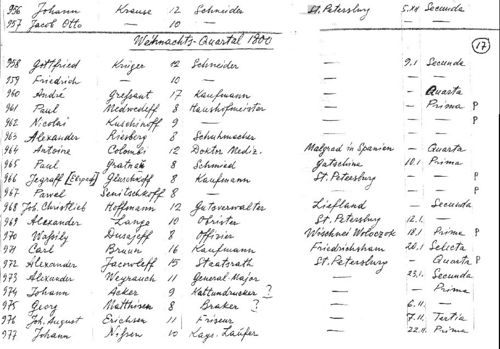 956 Johann Krause 12 Schneider St. Petersburg 5.XII Secunda
957 Jacob Otto — 10 — — — —
Weihnachts-Quartal 1800 17
958 Gottfried Krüger 12 Schneider — 9.1 Secunda
959 Friedrich — 10 — — — —
960 André Grefsaut 17 Kaufmann — — Quarta
961 Paul Medwedeff 8 Haushofmeister — — Prima P
962 Nicolai Kuschinoff 9 — — — — P
963 Alexander Riesberg 8 Schuhmacher — — —
964 Antoine Colombi 12 Doktor Mediz. Malgrad in Spanien — Quarta
965 Paul 8 Schmied Gatschina 10.1 Prima
966 Jegraff Gluschkoff 8 Kaufmann St. Petersburg — — P
967 Pawel Senitschkoff 8 — — — — P
968 Joh. Christlich Hoffmann 12 Gutsverwalter Liefland — Secunda
969 Alexander Lange 10 Obrister St. Petersburg 12.1. —
970 Wassily Durasoff 8 Offizier Wischnei Woloczok 18.1 Prima P
971 Carl Braun 16 Kaufmann Friedrichsham 20.1 Selecta
972 Alexander Jacowleff 15 Staatsrath St. Petersburg — Quarta P
973 Alexander Weyrauch 11 General-Major — 23.1. Secunda
974 Johann Acker 9 Kattundrucker ? — — Prima
975 Georg Matthisen 8 Braker ? — 6.11. —
976 Joh. August Erichsen 11 Friseur — 7.11. Tertia
977 Johann Nissen 10 Kays. Laüfer — 22.11. Prima